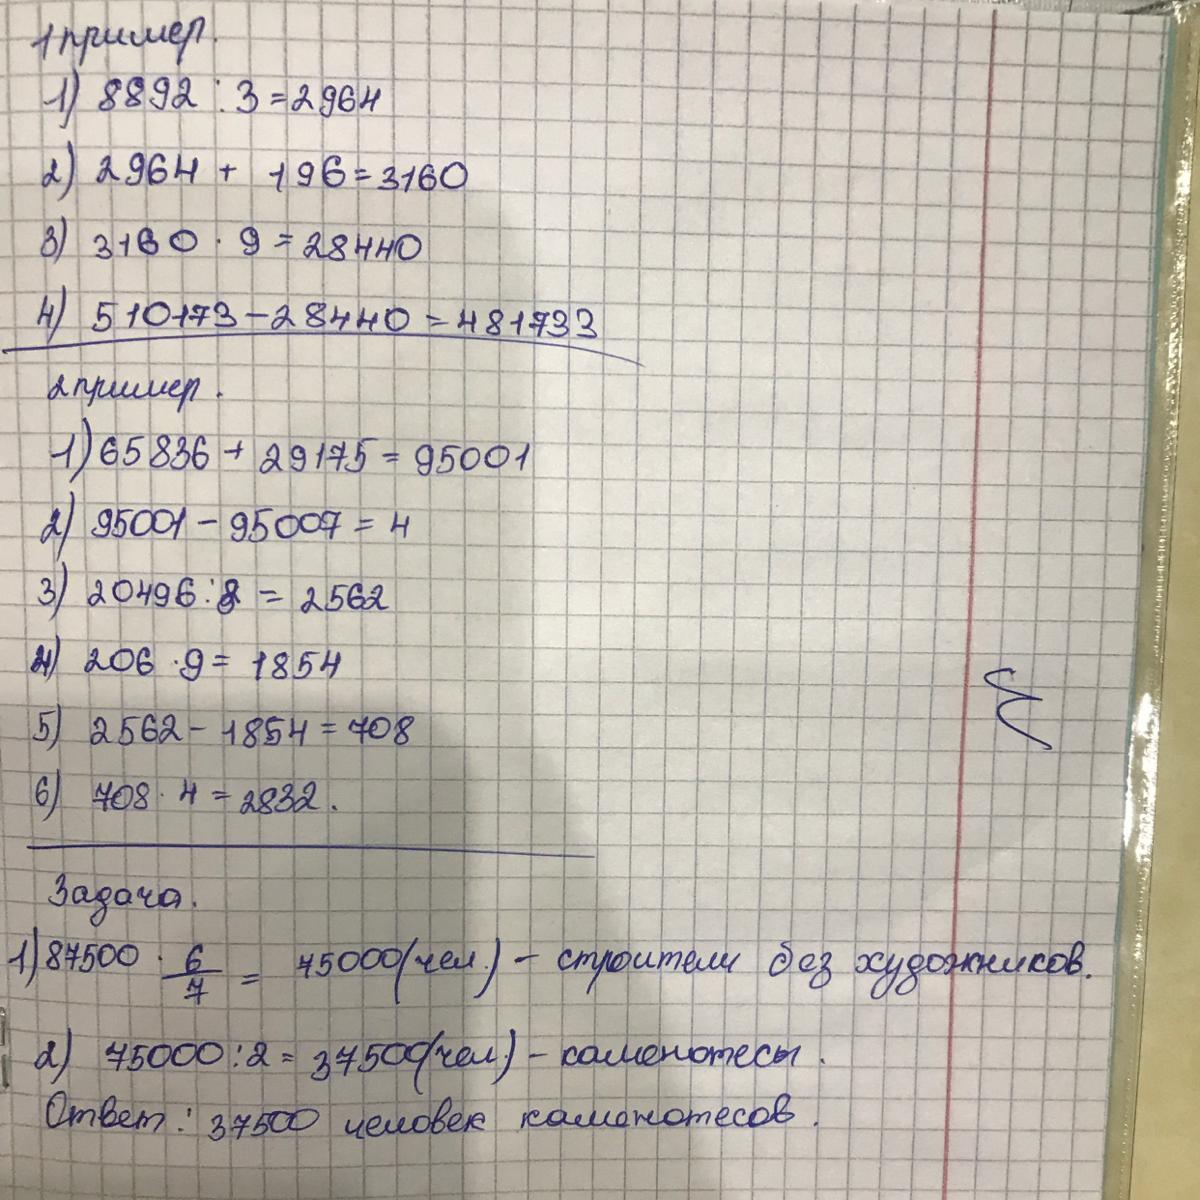 1 пример.
1) 8892 : 3 = 2964
2) 2964 + 196 = 3160
3) 3160 · 9 = 28440
4) 510173 - 28440 = 481733
2 пример.
1) 65836 + 29175 = 95001
2) 95001 - 95007 = 4
3) 20496 : 8 = 2562
4) 206 · 9 = 1854
5) 2562 - 1854 = 708
6) 708 · 4 = 2832.
Задача.
1) 87500 · 6/7 = 75000 (чел.) - строители без художников.
2) 75000 : 2 = 37500 (чел) - каменотесы.
Ответ: 37500 человек каменотесов.